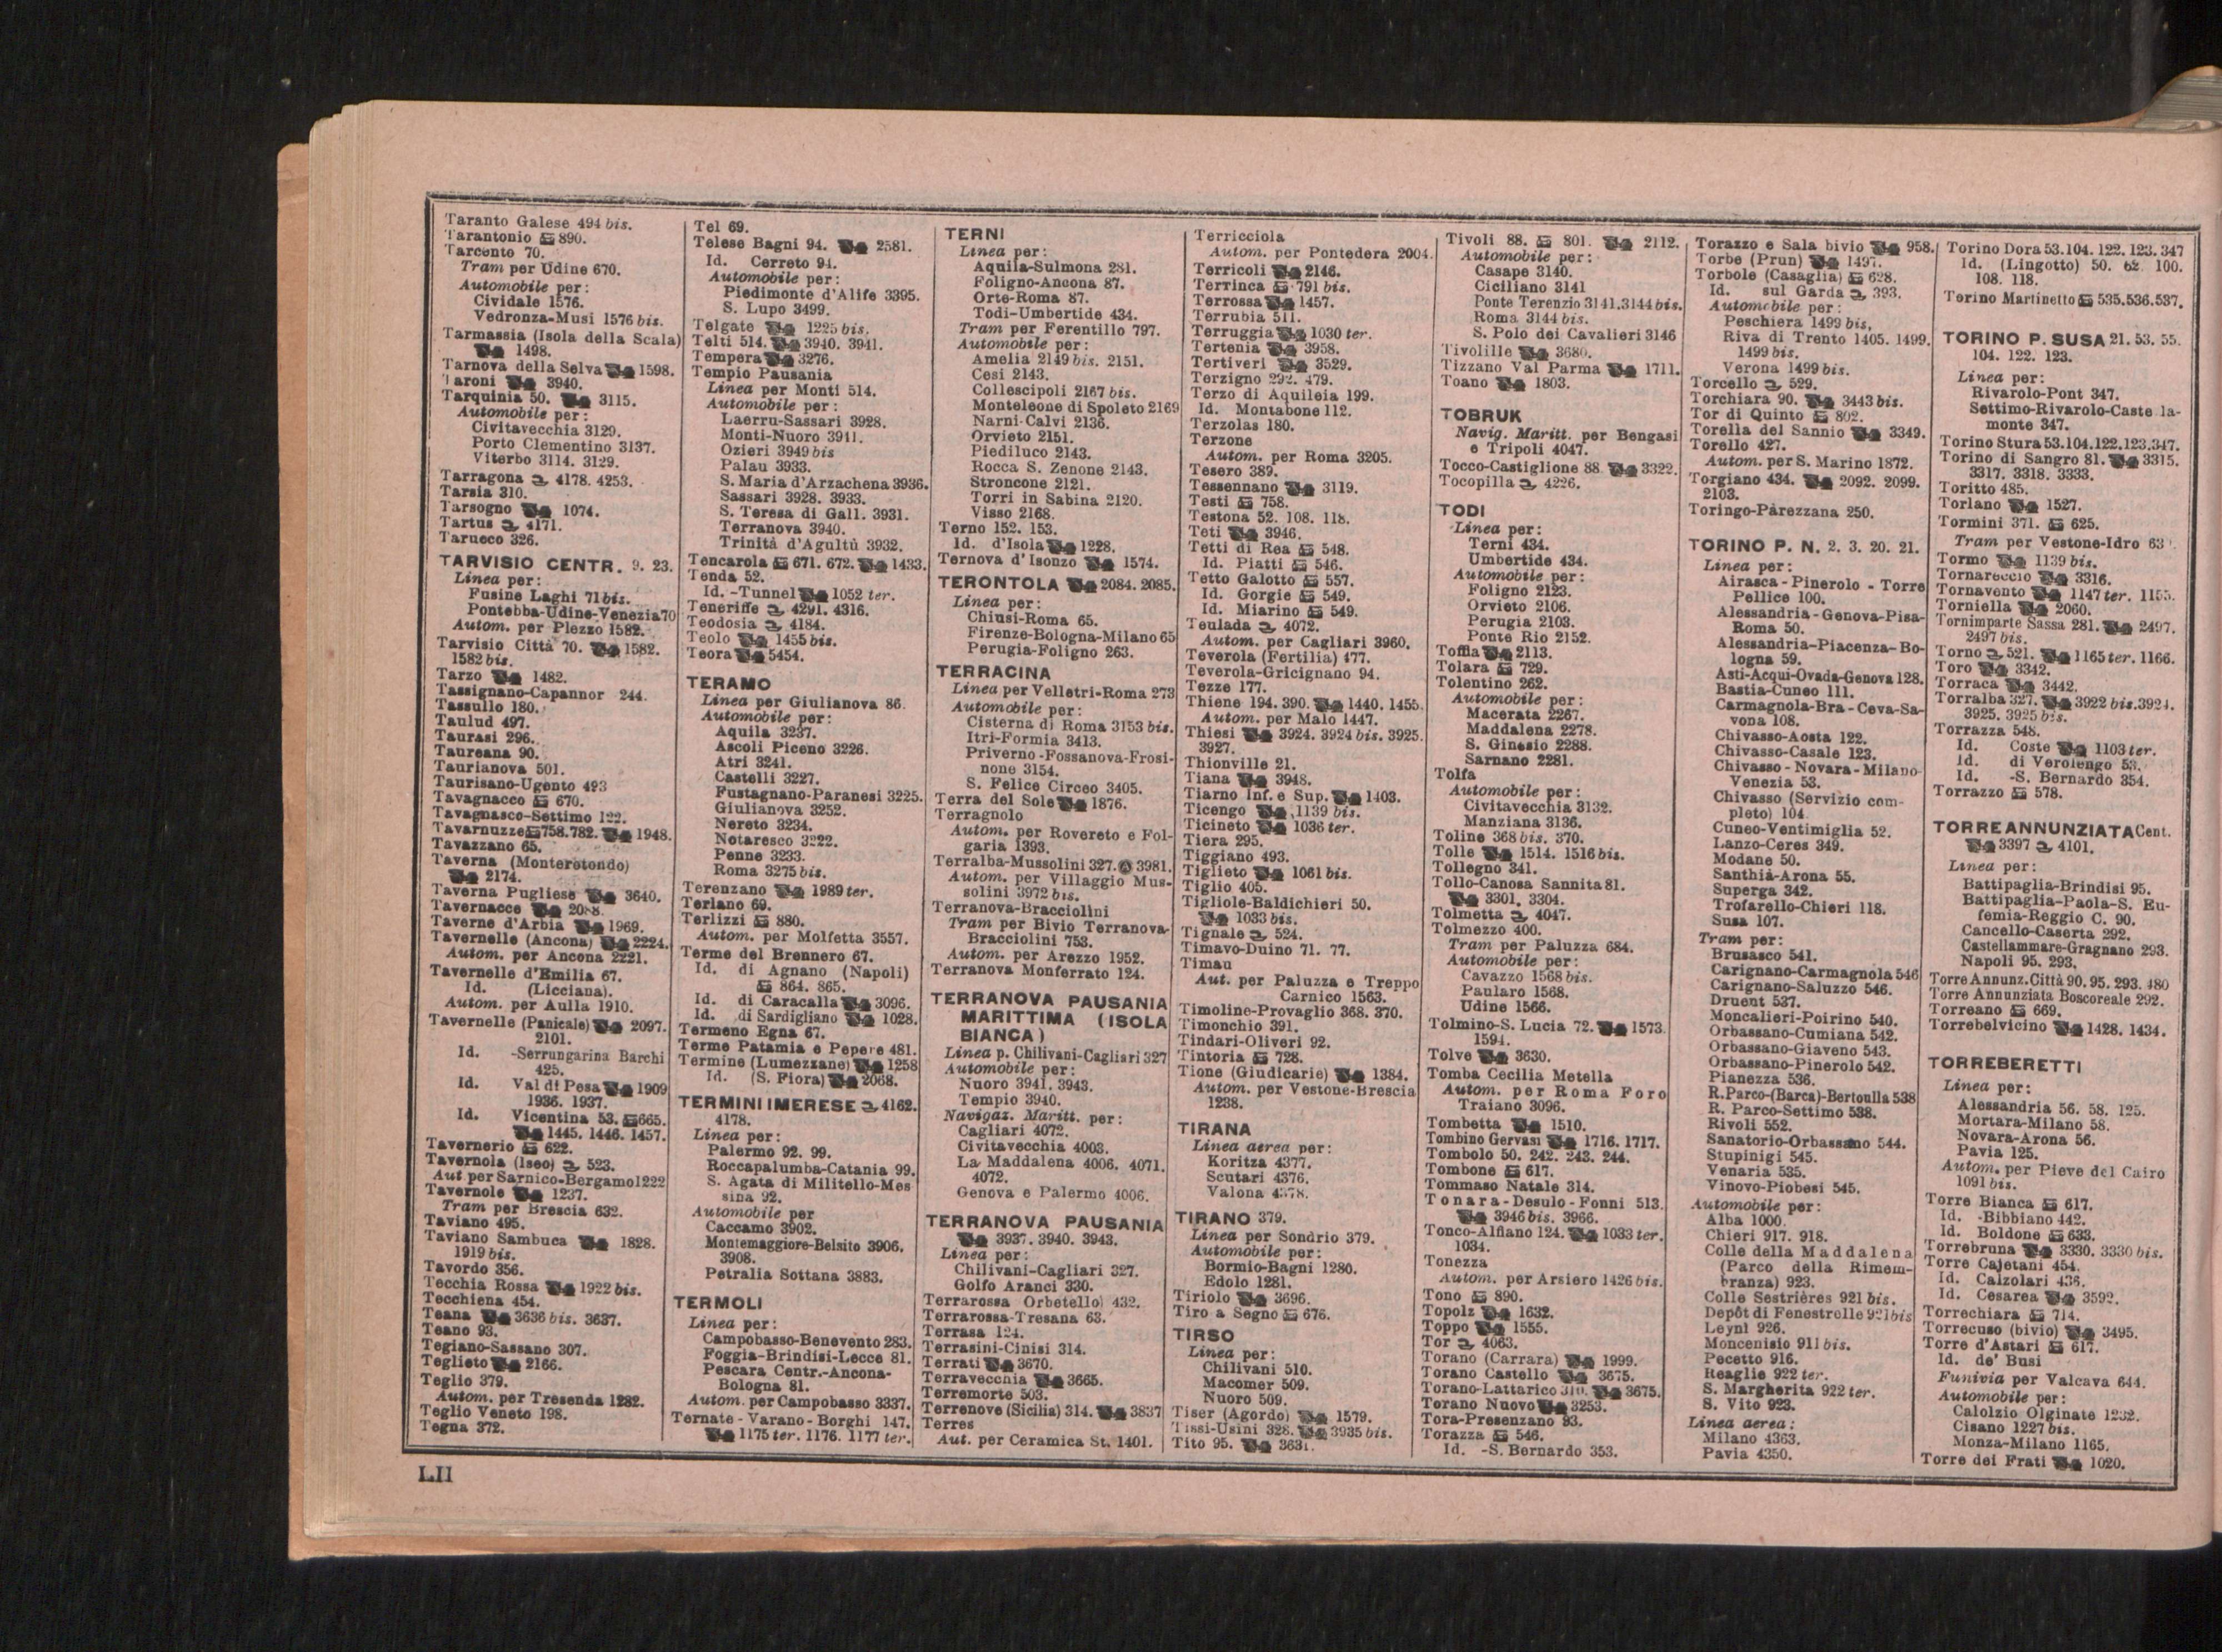 Taranto Galese 494 bis.
Tarantonio 890.
Tarcento 70.
Tram per Udine 670.
Automobile per:
Cividale 1576.
Vedronza-Musi 1576 bis.
Tarmassia (Isola della Scala)
1498.
Tarnova della Selva 1598.
Taroni 3940.
Tarquinia 50. 3115.
Automobile per:
Civitavecchia 3129.
Porto Clementino 3137.
Viterbo 3114. 3129.
Tarragona 4178. 4253.
Tarsia 310.
Tarsogno 1074.
Tartus 4171.
Tarueco 326.
TARVISIO CENTR. 9. 23.
Linea per:
Fusine Laghi 71 bis.
Pontebba-Udine-Venezia 70
Autom. per Plezzo 1582.
Tarvisio Città 70. 1582.
1582 bis.
Tarzo 1482.
Tassignano-Capannor 244.
Tassullo 180.
Taulud 497.
Taurasi 296.
Taureana 90.
Taurianova 501.
Taurisano-Ugento 493
Tavagnacco 670.
Tavagnasco-Settimo 122.
Tavarnuzze 758.782. 1948.
Tavazzano 65.
Taverna (Monterotondo)
2174.
Taverna Pugliese 3640.
Tavernacce
Taverne d'Arbia 1969.
Tavernelle (Ancona) 2224.
Autom. per Ancona 2221.
Tavernelle d'Emilia 67.
Id. (Licciana).
Autom. per Aulla 1910.
Tavernelle (Panicale) 2097.
2101.
Id. -Serrungarina Barchi
425.
Id. Val di Pesa 1909
1936. 1937.
Id. Vicentina 53. 665.
1445. 1446. 1457.
Tavernerio 622.
Tavernola (Iseo) 523.
Aut. per Sarnico-Bergamo 1222
Tavernole 1237.
Tram per Brescia 632.
Taviano 495.
Taviano Sambuca 1828.
1919 bis.
Tavordo 356.
Tecchia Rossa 1922 bis.
Tecchiena 454.
Teana 3636 bis. 3637.
Teano 93.
Tegiano-Sassano 307.
Teglieto 2166.
Teglio 379.
Autom. per Tresenda 1282.
Teglio Veneto 198.
Tegna 372.
Tel 69.
Telese Bagni 94. 2581.
Id. Cerreto 94.
Automobile per:
Piedimonte d'Alife 3395.
S. Lupo 3499.
Telgate 1225 bis.
Telti 514. 3940. 3941.
Tempera 3276.
Tempio Pausania
Linea per Monti 514.
Automobile per:
Laerru-Sassari 3928.
Monti-Nuoro 3941.
Ozieri 3949 bis
Palau 3933.
S. Maria d'Arzachena 3936.
Sassari 3928. 3933.
S. Teresa di Gall. 3931.
Terranova 3940.
Trinità d'Agultù 3932.
Tencarola 671. 672. 1433.
Tenda 52.
Id. -Tunnel 1052 ter.
Teneriffe 4291. 4316.
Teodosia 4184.
Teolo 1455 bis.
Teora 5454.
TERAMO
Linea per Giulianova 86.
Automobile per:
Aquila 3237.
Ascoli Piceno 3226.
Atri 3241.
Castelli 3227.
Fustagnano-Paranesi 3225.
Giulianova 3252.
Nereto 3234.
Notaresco 3222.
Penne 3233.
Roma 3275 bis.
Terenzano 1989 ter.
Terlano 69.
Terlizzi 880.
Autom. per Molfetta 3557.
Terme del Brennero 67.
Id. di Agnano (Napoli)
864. 865.
Id. di Caracalla 3096.
Id. di Sardigliano 1028.
Termeno Egna 67.
Terme Patamia e Pepere 481.
Termine (Lumezzane) 1258
Id. (S. Fiora) 2068.
TERMINI IMERESE 4162.
4178.
Linea per:
Palermo 92. 99.
Roccapalumba-Catania 99.
S. Agata di Militello-Mes
sina 92.
Automobile per
Caccamo 3902.
Montemaggiore-Belsito 3906.
3908.
Petralia Sottana 3883.
TERMOLI
Linea per:
Campobasso-Benevento 283.
Foggia-Brindisi-Lecce 81.
Pescara Centr.-Ancona-
Bologna 81.
Autom. per Campobasso 3337.
Ternate - Varano - Borghi 147.
1175 ter. 1176. 1177 ter.
TERNI
Linea per:
Aquila-Sulmona 281.
Foligno-Ancona 87.
Orte-Roma 87.
Todi-Umbertide 434.
Tram per Ferentillo 797.
Automobile per:
Amelia 2149 bis. 2151.
Cesi 2143.
Collescipoli 2167 bis.
Monteleone di Spoleto 2169
Narni-Calvi 2136.
Orvieto 2151.
Piediluco 2143.
Rocca S. Zenone 2143.
Stroncone 2121.
Torri in Sabina 2120.
Visso 2168.
Terno 152. 153.
Id. d'Isola 1228.
Ternova d'Isonzo 1574.
TERONTOLA 2084. 2085.
Linea per:
Chiusi-Roma 65.
Firenze-Bologna-Milano 65
Perugia-Foligno 263.
TERRACINA
Linea per Velletri-Roma 273
Automobile per:
Cisterna di Roma 3153 bis.
Itri-Formia 3413.
Priverno-Fossanova-Frosi-
none 3154.
S. Felice Circeo 3405.
Terra del Sole 1876.
Terragnolo
Autom. per Rovereto e Fol-
garia 1393.
Terralba-Mussolini 327. 3981.
Autom. per Villaggio Mus-
solini 3972 bis.
Terranova-Bracciolini
Tram per Bivio Terranova-
Bracciolini 753.
Autom. per Arezzo 1952.
Terranova Monferrato 124.
TERRANOVA PAUSANIA
MARITTIMA (ISOLA
BIANCA)
Linea p. Chilivani-Cagliari 327
Automobile per:
Nuoro 3941. 3943.
Tempio 3940.
Navigaz. Maritt. per:
Cagliari 4072.
Civitavecchia 4003.
La Maddalena 4006. 4071.
4072.
Genova e Palermo 4006.
TERRANOVA PAUSANIA
3937. 3940. 3943.
Linea per:
Chilivani-Cagliari 327.
Golfo Aranci 330.
Terrarossa Orbetello) 432.
Terrarossa-Tresana 63.
Terrasa 124.
Terrasini-Cinisi 314.
Terrati 3670.
Terravecchia 3665.
Terremorte 503.
Terrenove (Sicilia) 314. 3837
Terres
Aut. per Ceramica St. 1401.
Terricciola
Autom. per Pontedera 2004.
Terricoli 2146.
Terrinca 791 bis.
Terrossa 1457.
Terrubia 511.
Terruggia 1030 ter.
Tertenia 3958.
Tertiveri 3529.
Terzigno 292. 479.
Terzo di Aquileia 199.
Id. Montabone 112.
Terzolas 180.
Terzone
Autom. per Roma 3205.
Tesero 389.
Tessennano 3119.
Testi 758.
Testona 52. 108. 118.
Teti 3946.
Tetti di Rea 548.
Id. Piatti 546.
Tetto Galotto 557.
Id. Gorgie 549.
Id. Miarino 549.
Teulada 4072.
Autom. per Cagliari 3960.
Teverola (Fertilia) 477.
Teverola-Gricignano 94.
Tezze 177.
Thiene 194. 390. 1440. 1455.
Autom. per Malo 1447.
Thiesi 3924. 3924 bis. 3925.
3927.
Thionville 21.
Tiana 3948.
Tiarno Inf. e Sup. 1403.
Ticengo 1139 bis.
Ticineto 1036 ter.
Tiera 295.
Tiggiano 493.
Tiglieto 1061 bis.
Tiglio 405.
Tigliole-Baldichieri 50.
1033 bis.
Tignale 524.
Timavo-Duino 71. 77.
Timau
Aut. per Paluzza e Treppo
Carnico 1563.
Timoline-Provaglio 368. 370.
Timonchio 391.
Tindari-Oliveri 92.
Tintoria 728.
Tione (Giudicarie) 1384.
Autom. per Vestone-Brescia
1238.
TIRANA
Linea aerea per:
Koritza 4377.
Scutari 4376.
Valona 4378.
TIRANO 379.
Linea per Sondrio 379.
Automobile per:
Bormio-Bagni 1280.
Edolo 1281.
Tiriolo 3696.
Tiro a Segno 676.
TIRSO
Linea per:
Chilivani 510.
Macomer 509.
Nuoro 509.
Tiser (Agordo) 1579.
Tissi-Usini 328. 3935 bis.
Tito 95. 3631.
Tivoli 88. 801. 2112.
Automobile per:
Casape 3140.
Ciciliano 3141
Ponte Terenzio 3141.3144 bis.
Roma 3144 bis.
S. Polo dei Cavalieri 3146
Tivolille 3680.
Tizzano Val Parma 1711.
Toano 1803.
TOBRUK
Navig. Maritt. per Bengasi
e Tripoli 4047.
Tocco-Castiglione 88. 3322.
Tocopilla 4226.
TODI
Linea per:
Terni 434.
Umbertide 434.
Automobile per:
Foligno 2123.
Orvieto 2106.
Perugia 2103.
Ponte Rio 2152.
Toffia 2113.
Tolara 729.
Tolentino 262.
Automobile per:
Macerata 2267.
Maddalena 2278.
S. Ginesio 2288.
Sarnano 2281.
Tolfa
Automobile per:
Civitavecchia 3132.
Manziana 3136.
Toline 368 bis. 370.
Tolle 1514. 1516 bis.
Tollegno 341.
Tollo-Canosa Sannita 81.
3301. 3304.
Tolmetta 4047.
Tolmezzo 400.
Tram per Paluzza 684.
Automobile per:
Cavazzo 1568 bis.
Paularo 1568.
Udine 1566.
Tolmino-S. Lucia 72. 1573.
1594.
Tolve 3630.
Tomba Cecilia Metella
Autom. per Roma Foro
Traiano 3096.
Tombetta 1510.
Tombino Gervasi 1716. 1717.
Tombolo 50. 242. 243. 244.
Tombone 617.
Tommaso Natale 314.
Tonara-Desulo-Fonni 513.
3946 bis. 3966.
Tonco-Alfiano 124. 1033 ter.
1034.
Tonezza
Autom. per Arsiero 1426 bis.
Tono 890.
Topolz 1632.
Toppo 1555.
Tor 4063.
Torano (Carrara) 1999.
Torano Castello 3675.
Torano-Lattarico 310. 3675.
Torano Nuovo 3253.
Tora-Presenzano 93.
Torazza 546.
Id. -S. Bernardo 353.
Torazzo e Sala bivio 958.
Torbe (Prun) 1497.
Torbole (Casaglia) 628.
Id. sul Garda 393.
Automobile per:
Peschiera 1499 bis,
Riva di Trento 1405. 1499.
1499 bis.
Verona 1499 bis.
Torcello 529.
Torchiara 90. 3443 bis.
Tor di Quinto 802.
Torella del Sannio 3349.
Torello 427.
Autom. per S. Marino 1872.
Torgiano 434. 2092. 2099.
2103.
Toringo-Parezzana 250.
TORINO P. N. 2. 3. 20. 21.
Linea per:
Airasca - Pinerolo - Torre
Pellice 100.
Alessandria - Genova-Pisa-
Roma 50.
Alessandria-Piacenza-Bo-
logna 59.
Asti-Acqui-Ovada-Genova 128.
Bastia-Cuneo 111.
Carmagnola-Bra-Ceva-Sa-
vona 108.
Chivasso-Aosta 122.
Chivasso-Casale 123.
Chivasso-Novara-Milano-
Venezia 53.
Chivasso (Servizio com-
pleto) 104.
Cuneo-Ventimiglia 52.
Lanzo-Ceres 349.
Modane 50.
Santhià-Arona 55.
Superga 342.
Trofarello-Chieri 118.
Susa 107.
Tram per:
Brusasco 541.
Carignano-Carmagnola 546
Carignano-Saluzzo 546.
Druent 537.
Moncalieri-Poirino 540.
Orbassano-Cumiana 542.
Orbassano-Giaveno 543.
Orbassano-Pinerolo 542.
Pianezza 536.
R.Parco-(Barca)-Bertoulla 538
R. Parco-Settimo 538.
Rivoli 552.
Sanatorio-Orbassano 544.
Stupinigi 545.
Venaria 535.
Vinovo-Piobesi 545.
Automobile per:
Alba 1000.
Chieri 917. 918.
Colle della Maddalena
(Parco della Rimem-
branza) 923.
Colle Sestrières 921 bis.
Depôt di Fenestrelle 921 bis
Leynì 926.
Moncenisio 911 bis.
Pecetto 916.
Reaglie 922 ter.
S. Margherita 922 ter.
S. Vito 923.
Linea aerea:
Milano 4363.
Pavia 4350.
Torino Dora 53.104. 122. 123. 347
Id. (Lingotto) 50. 62. 100.
108. 118.
Torino Martinetto 535.536.537.
TORINO P. SUSA 21. 53. 55.
104. 122. 123.
Linea per:
Rivarolo-Pont 347.
Settimo-Rivarolo-Caste la-
monte 347.
Torino Stura 53.104.122.123.347.
Torino di Sangro 81. 3315.
3317. 3318. 3333.
Toritto 485.
Torlano 1527.
Tormini 371. 625.
Tram per Vestone-Idro
Tormo 1139 bis.
Tornareccio 3316.
Tornavento 1147 ter. 1155.
Torniella 2060.
Tornimparte Sassa 281. 2497.
2497 bis.
Torno 521. 1165 ter. 1166.
Toro 3342.
Torraca 3442.
Torralba 327. 3922 bis.3924.
3925. 3925 bis.
Torrazza 548.
Id. Coste 1103 ter.
Id. di Verolengo 53.
Id. -S. Bernardo 354.
Torrazzo 578.
TORRE ANNUNZIATA Cent.
3397 4101.
Linea per:
Battipaglia-Brindisi 95.
Battipaglia-Paola-S. Eu-
femia-Reggio C. 90.
Cancello-Caserta 292.
Castellammare-Gragnano 293.
Napoli 95. 293.
Torre Annunz. Città 90. 95. 293. 480
Torre Annunziata Boscoreale 292.
Torreano 669.
Torrebelvicino 1428. 1434.
TORREBERETTI
Linea per:
Alessandria 56. 58. 125.
Mortara-Milano 58.
Novara-Arona 56.
Pavia 125.
Autom. per Pieve del Cairo
1091 bis.
Torre Bianca 617.
Id. -Bibbiano 442.
Id. Boldone 633.
Torrebruna 3330. 3330 bis.
Torre Cajetani 454.
Id. Calzolari 436.
Id. Cesarea 3592.
Torrechiara 714.
Torrecuso (bivio) 3495.
Torre d'Astari 617.
Id. de' Busi
Funivia per Valcava 644.
Automobile per:
Calolzio Olginate 1232.
Cisano 1227 bis.
Monza-Milano 1165.
Torre dei Frati 1020.
LII